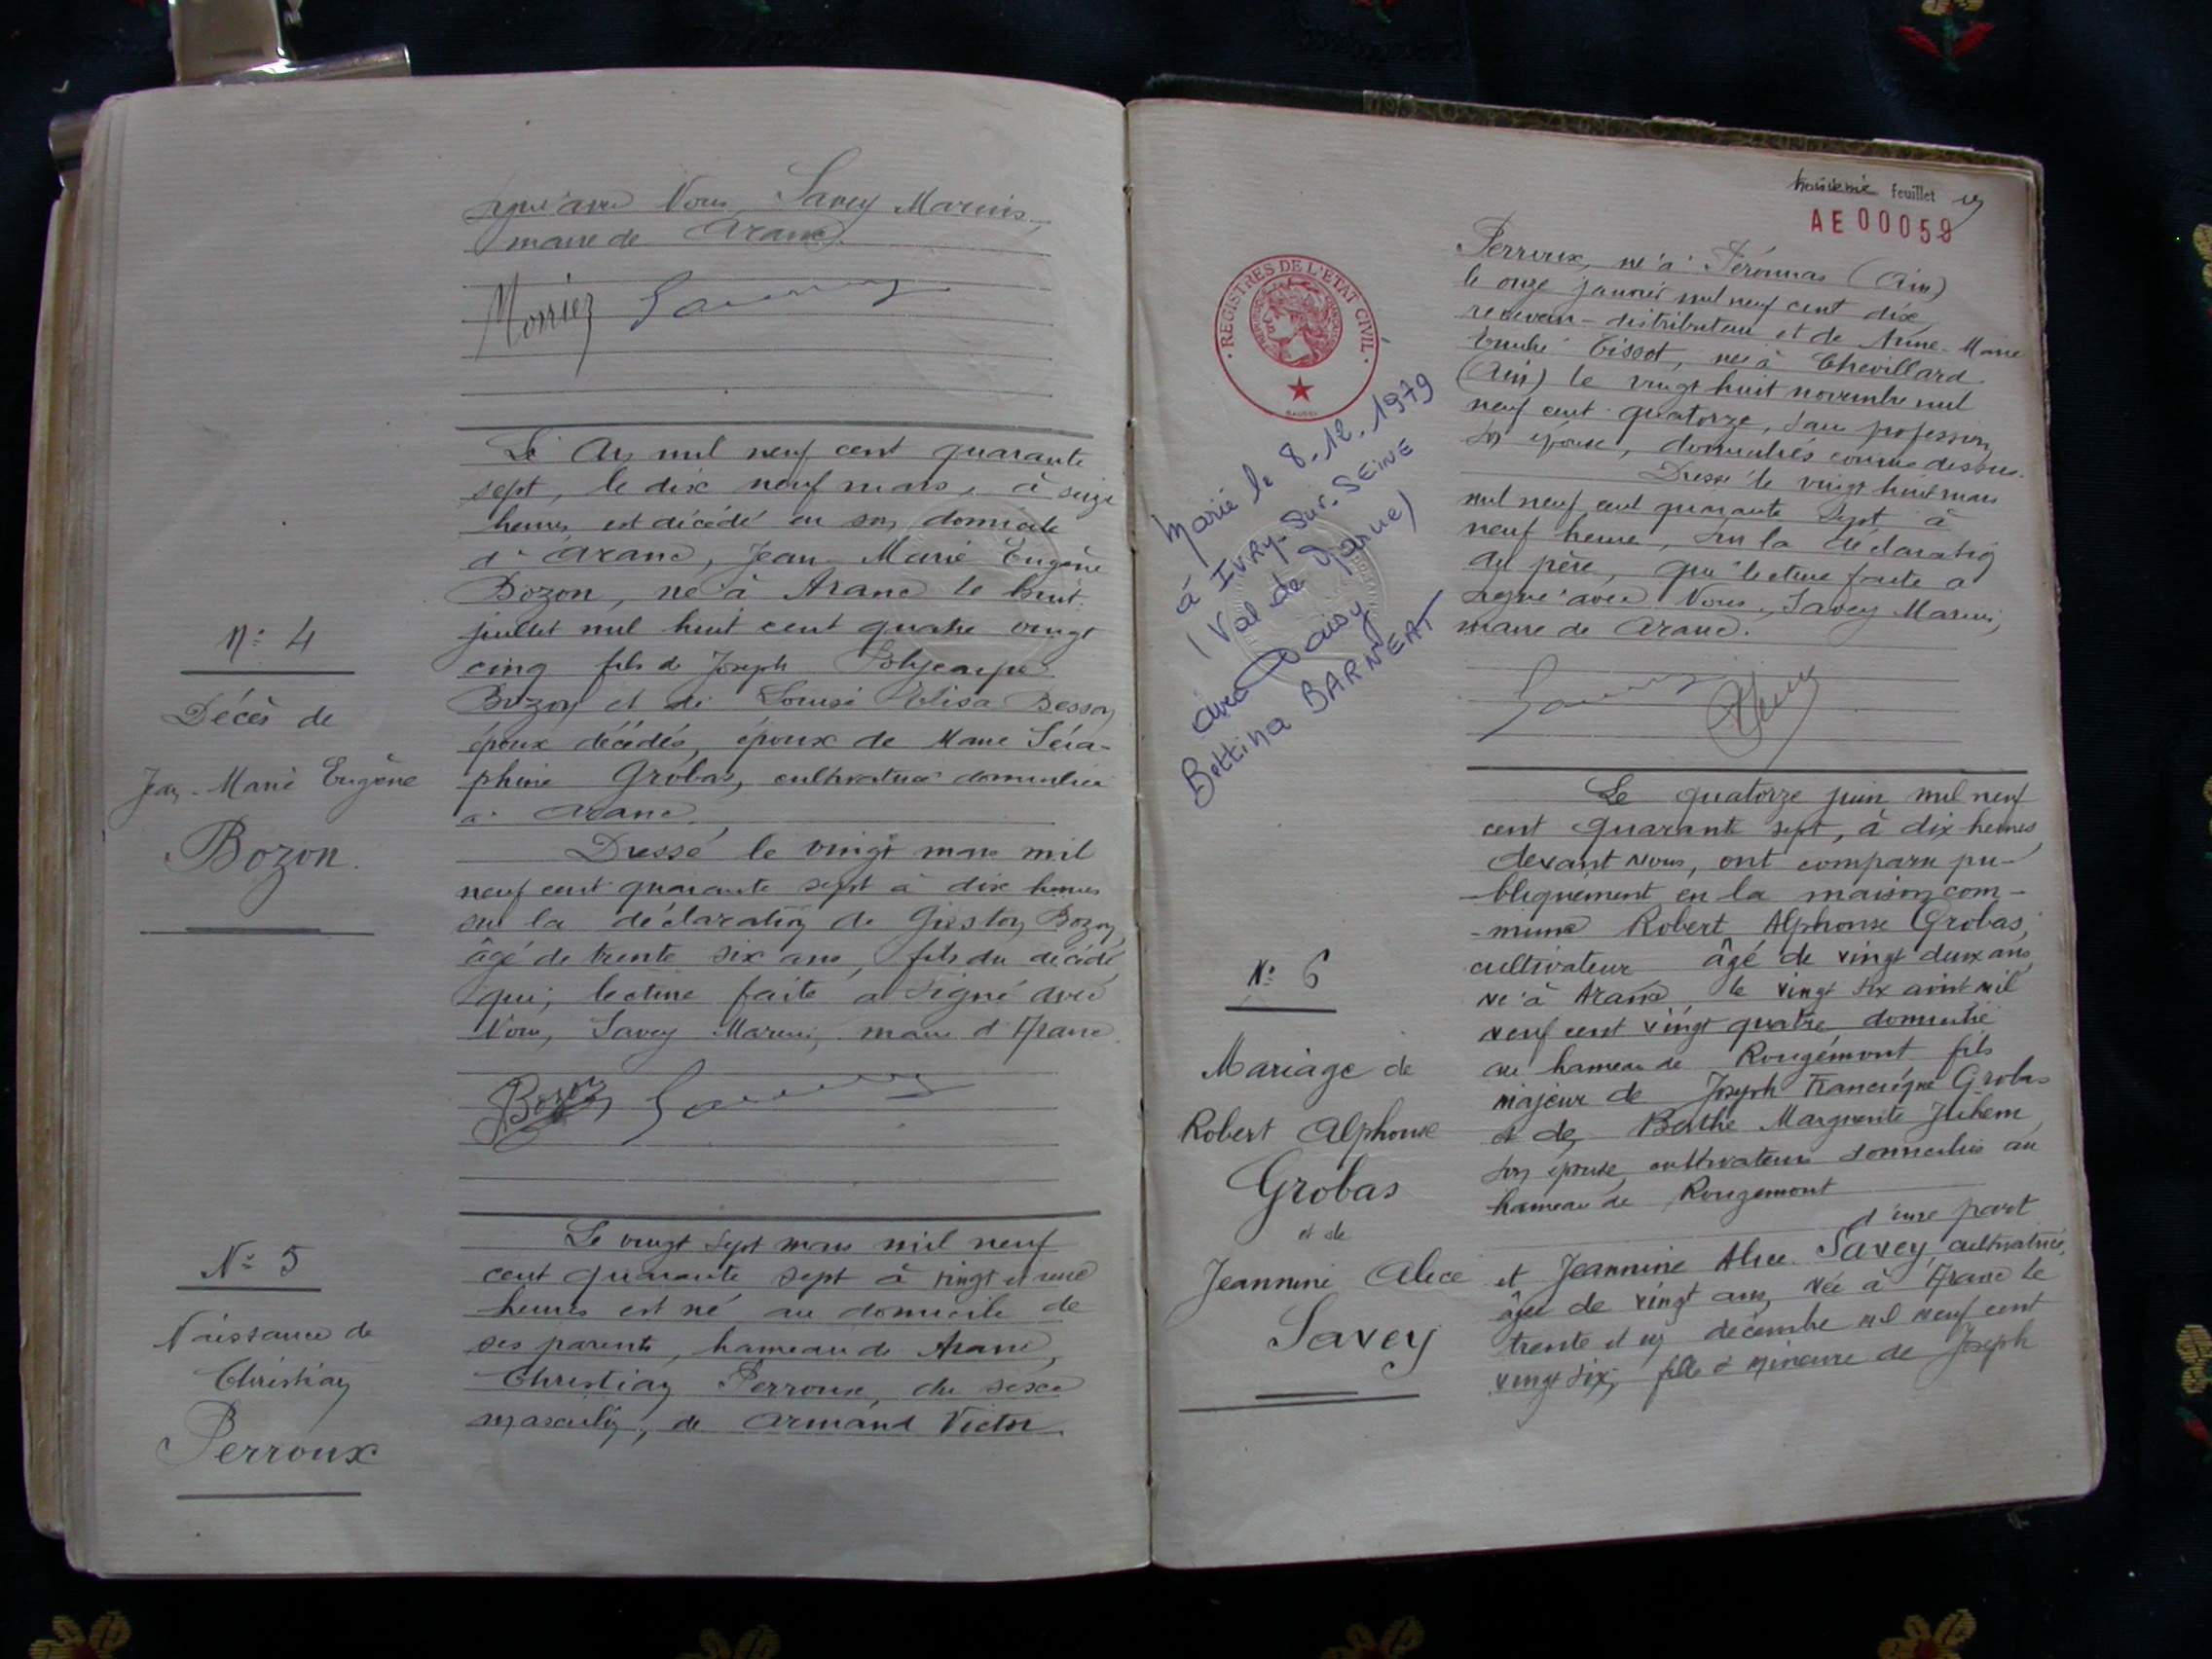 signé avec Nous, Savey Marius,
maire de Aranc.
Le An mil neuf cent quarante
sept, le dix neuf mars, à seize
heures est décédé en son domicile
d'Aranc, Jean Marie Eugène
Bozon, né à Aranc le huit
juillet mil huit cent quatre vingt
cinq fils de Joseph Polycarpe
Bozon et de Louise Elisa Besson
époux décédés, époux de Marie Séra-
phine Grobas, cultivatrice domiciliée
à Aranc.
Dressé le vingt mars mil
neuf cent quarante sept à dix heures
sur la déclaration de Gaston Bozon
âgé de trente six ans, fils du décédé
qui, lecture faite a signé avec
Nous, Savey Marius, maire d'Aranc.
Bozon
N° 4
Décès de
Jean-Marie Eugène
Bozon.
Le vingt sept mars mil neuf
cent quarante sept à vingt et une
heures est né au domicile de
ses parents, hameau de Aranc,
Christian Perroux, du sexe
masculin, de Armand Victor
N° 5
Naissance de
Christian
Perroux
feuillet
AE 00059
REGISTRES DE L'ETAT CIVIL
Perroux, né à Péronnas (Ain)
le onze janvier mil neuf cent dix
receveur-distributeur et de Anne-Marie
Tissot, née à Chevillard
(Ain) le vingt huit novembre mil
neuf cent quatorze, sans profession,
son épouse, domiciliés comme dessus.
Dressé le vingt huit mars
mil neuf cent quarante sept à
neuf heure, sur la déclaration
du père, qui lecture faite a
signé avec Nous, Savey Marius,
maire de Aranc.
Marié le 8.12.1979
à IVRY-Sur-SEINE
(Val de Marne)
avec Daisy
Bettina BARNEAT
Le quatorze juin mil neuf
cent quarante sept, à dix heures
devant nous, ont comparu pu-
-bliquement en la maison com-
-mune Robert Alphonse Grobas,
cultivateur âgé de vingt deux ans,
né à Aranc le vingt six août mil
neuf cent vingt quatre, domicilié
au hameau de Rougemont fils
majeur de Joseph Francisque Grobas
et de Berthe Marguerite Juhem
son épouse, cultivateurs domiciliés au
hameau de Rougemont
d'une part
et Jeannine Alice Savey, cultivatrice,
âgée de vingt ans, née à Aranc le
trente et un décembre mil neuf cent
vingt six, fille mineure de Joseph
N° 6
Mariage de
Robert Alphonse
Grobas
et de
Jeannine Alice
Savey